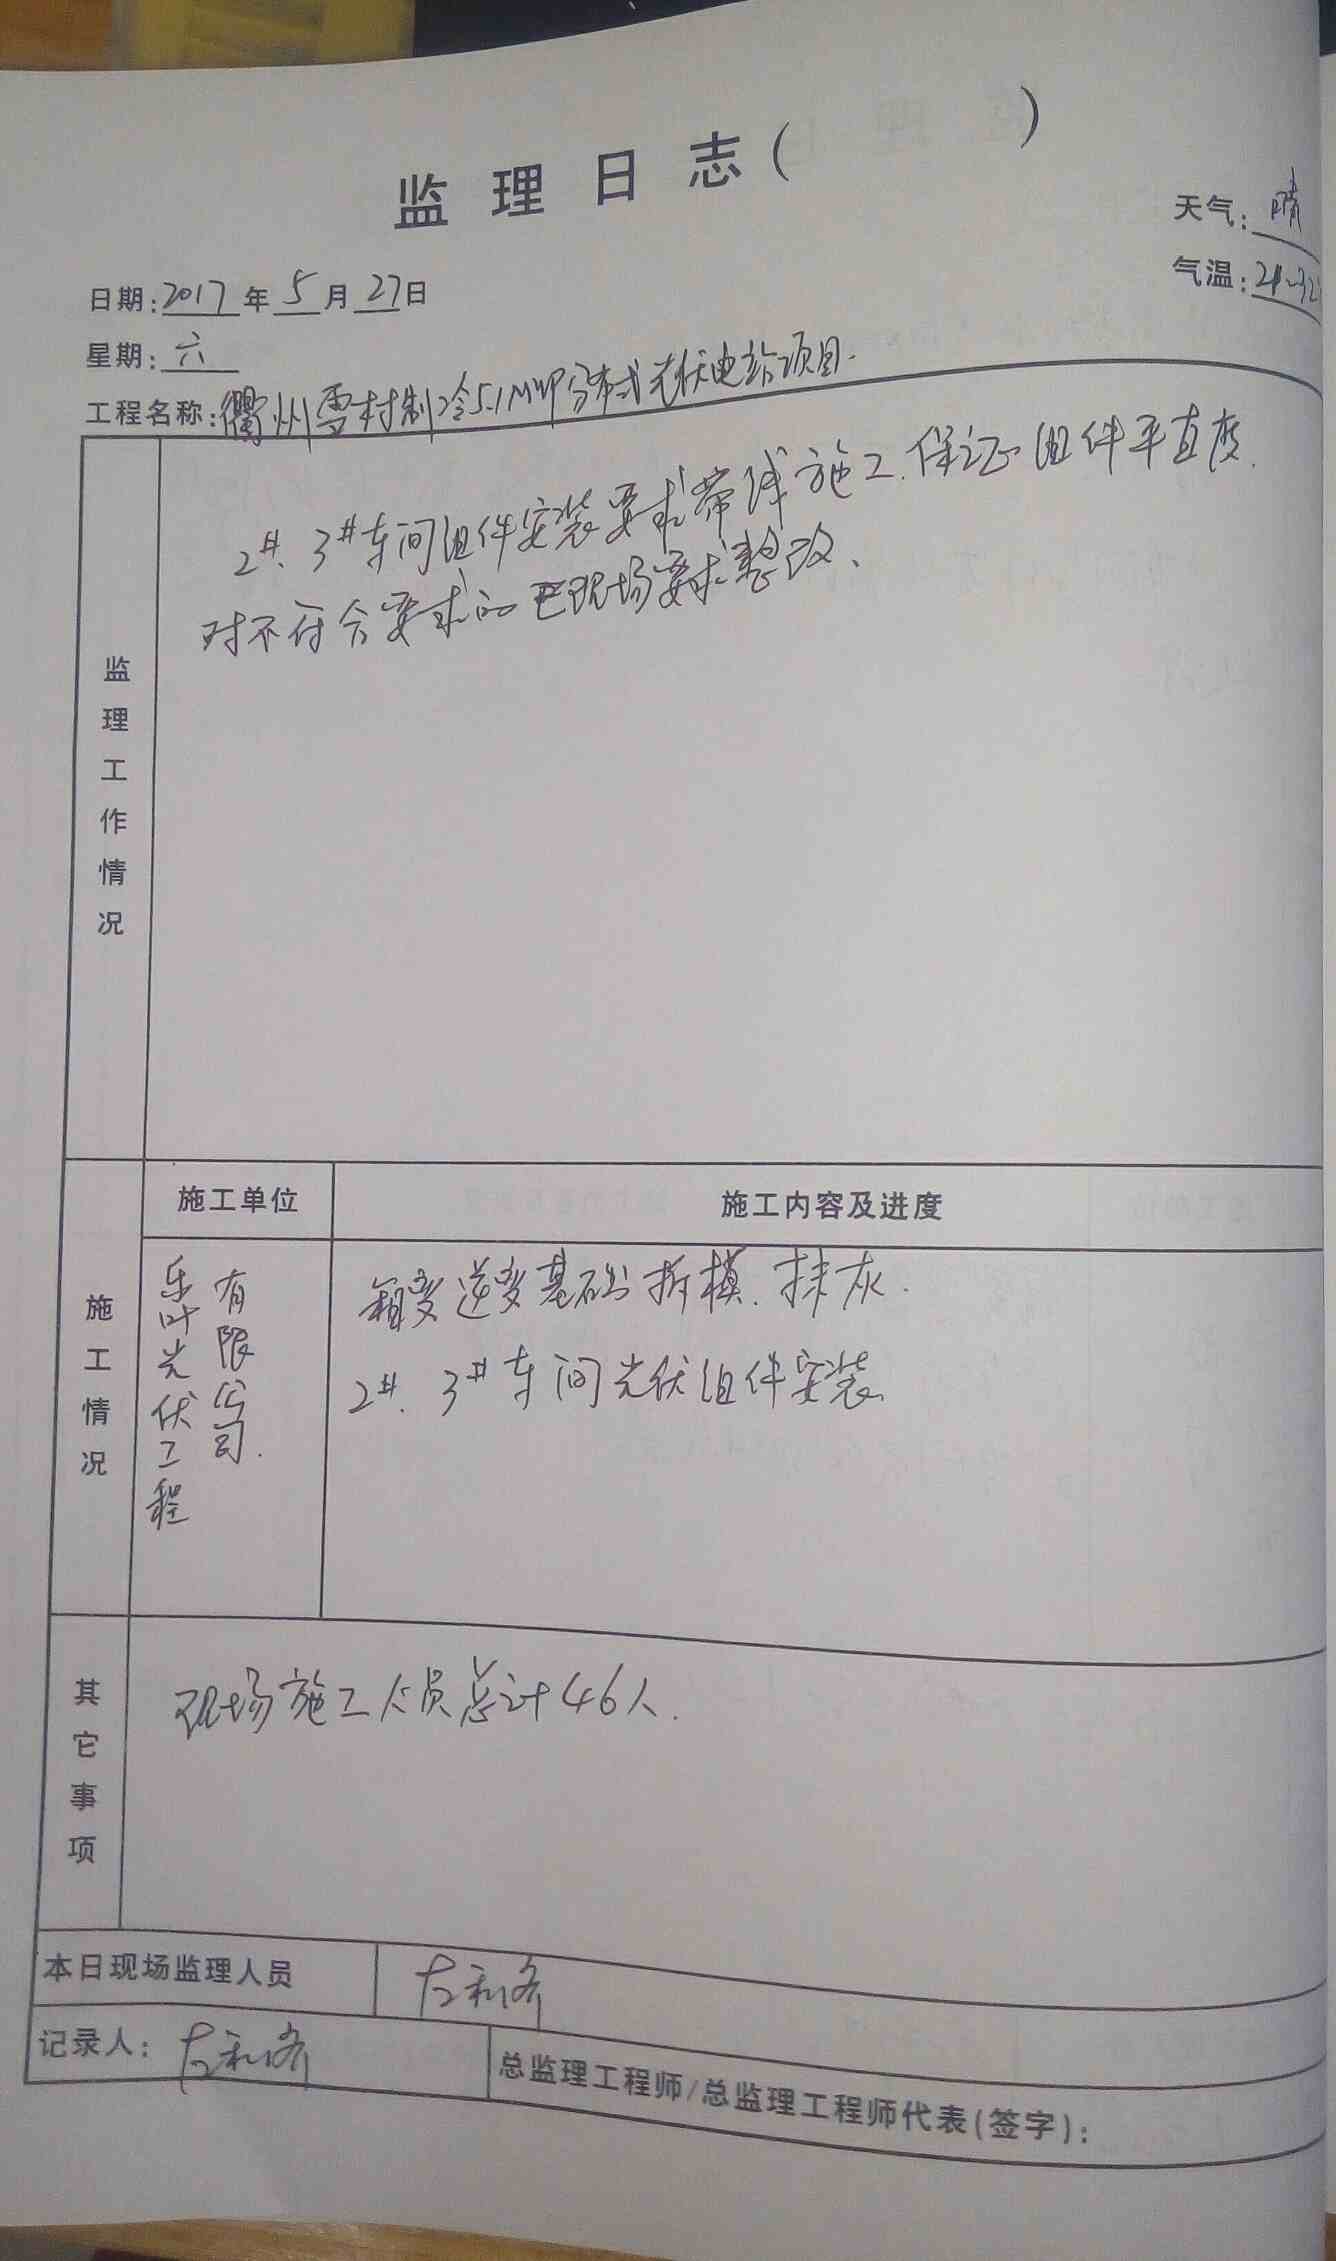 监理日志( )
天气: 晴
气温: 21~32
日期: 2017年5月27日
星期: 六
工程名称: 衢州雪村制冷5.1MWP分布式光伏电站项目.
监理工作情况
2#、3#车间组件安装要求带线施工,保证组件平直度.
对不符合要求的已现场要求整改、
施工情况
施工单位
施工内容及进度
乐叶光伏工程
有限公司.
箱变逆变基础拆模、抹灰.
2#、3#车间光伏组件安装
其它事项
现场施工人员总计46人.
本日现场监理人员
记录人:
总监理工程师/总监理工程师代表(签字):